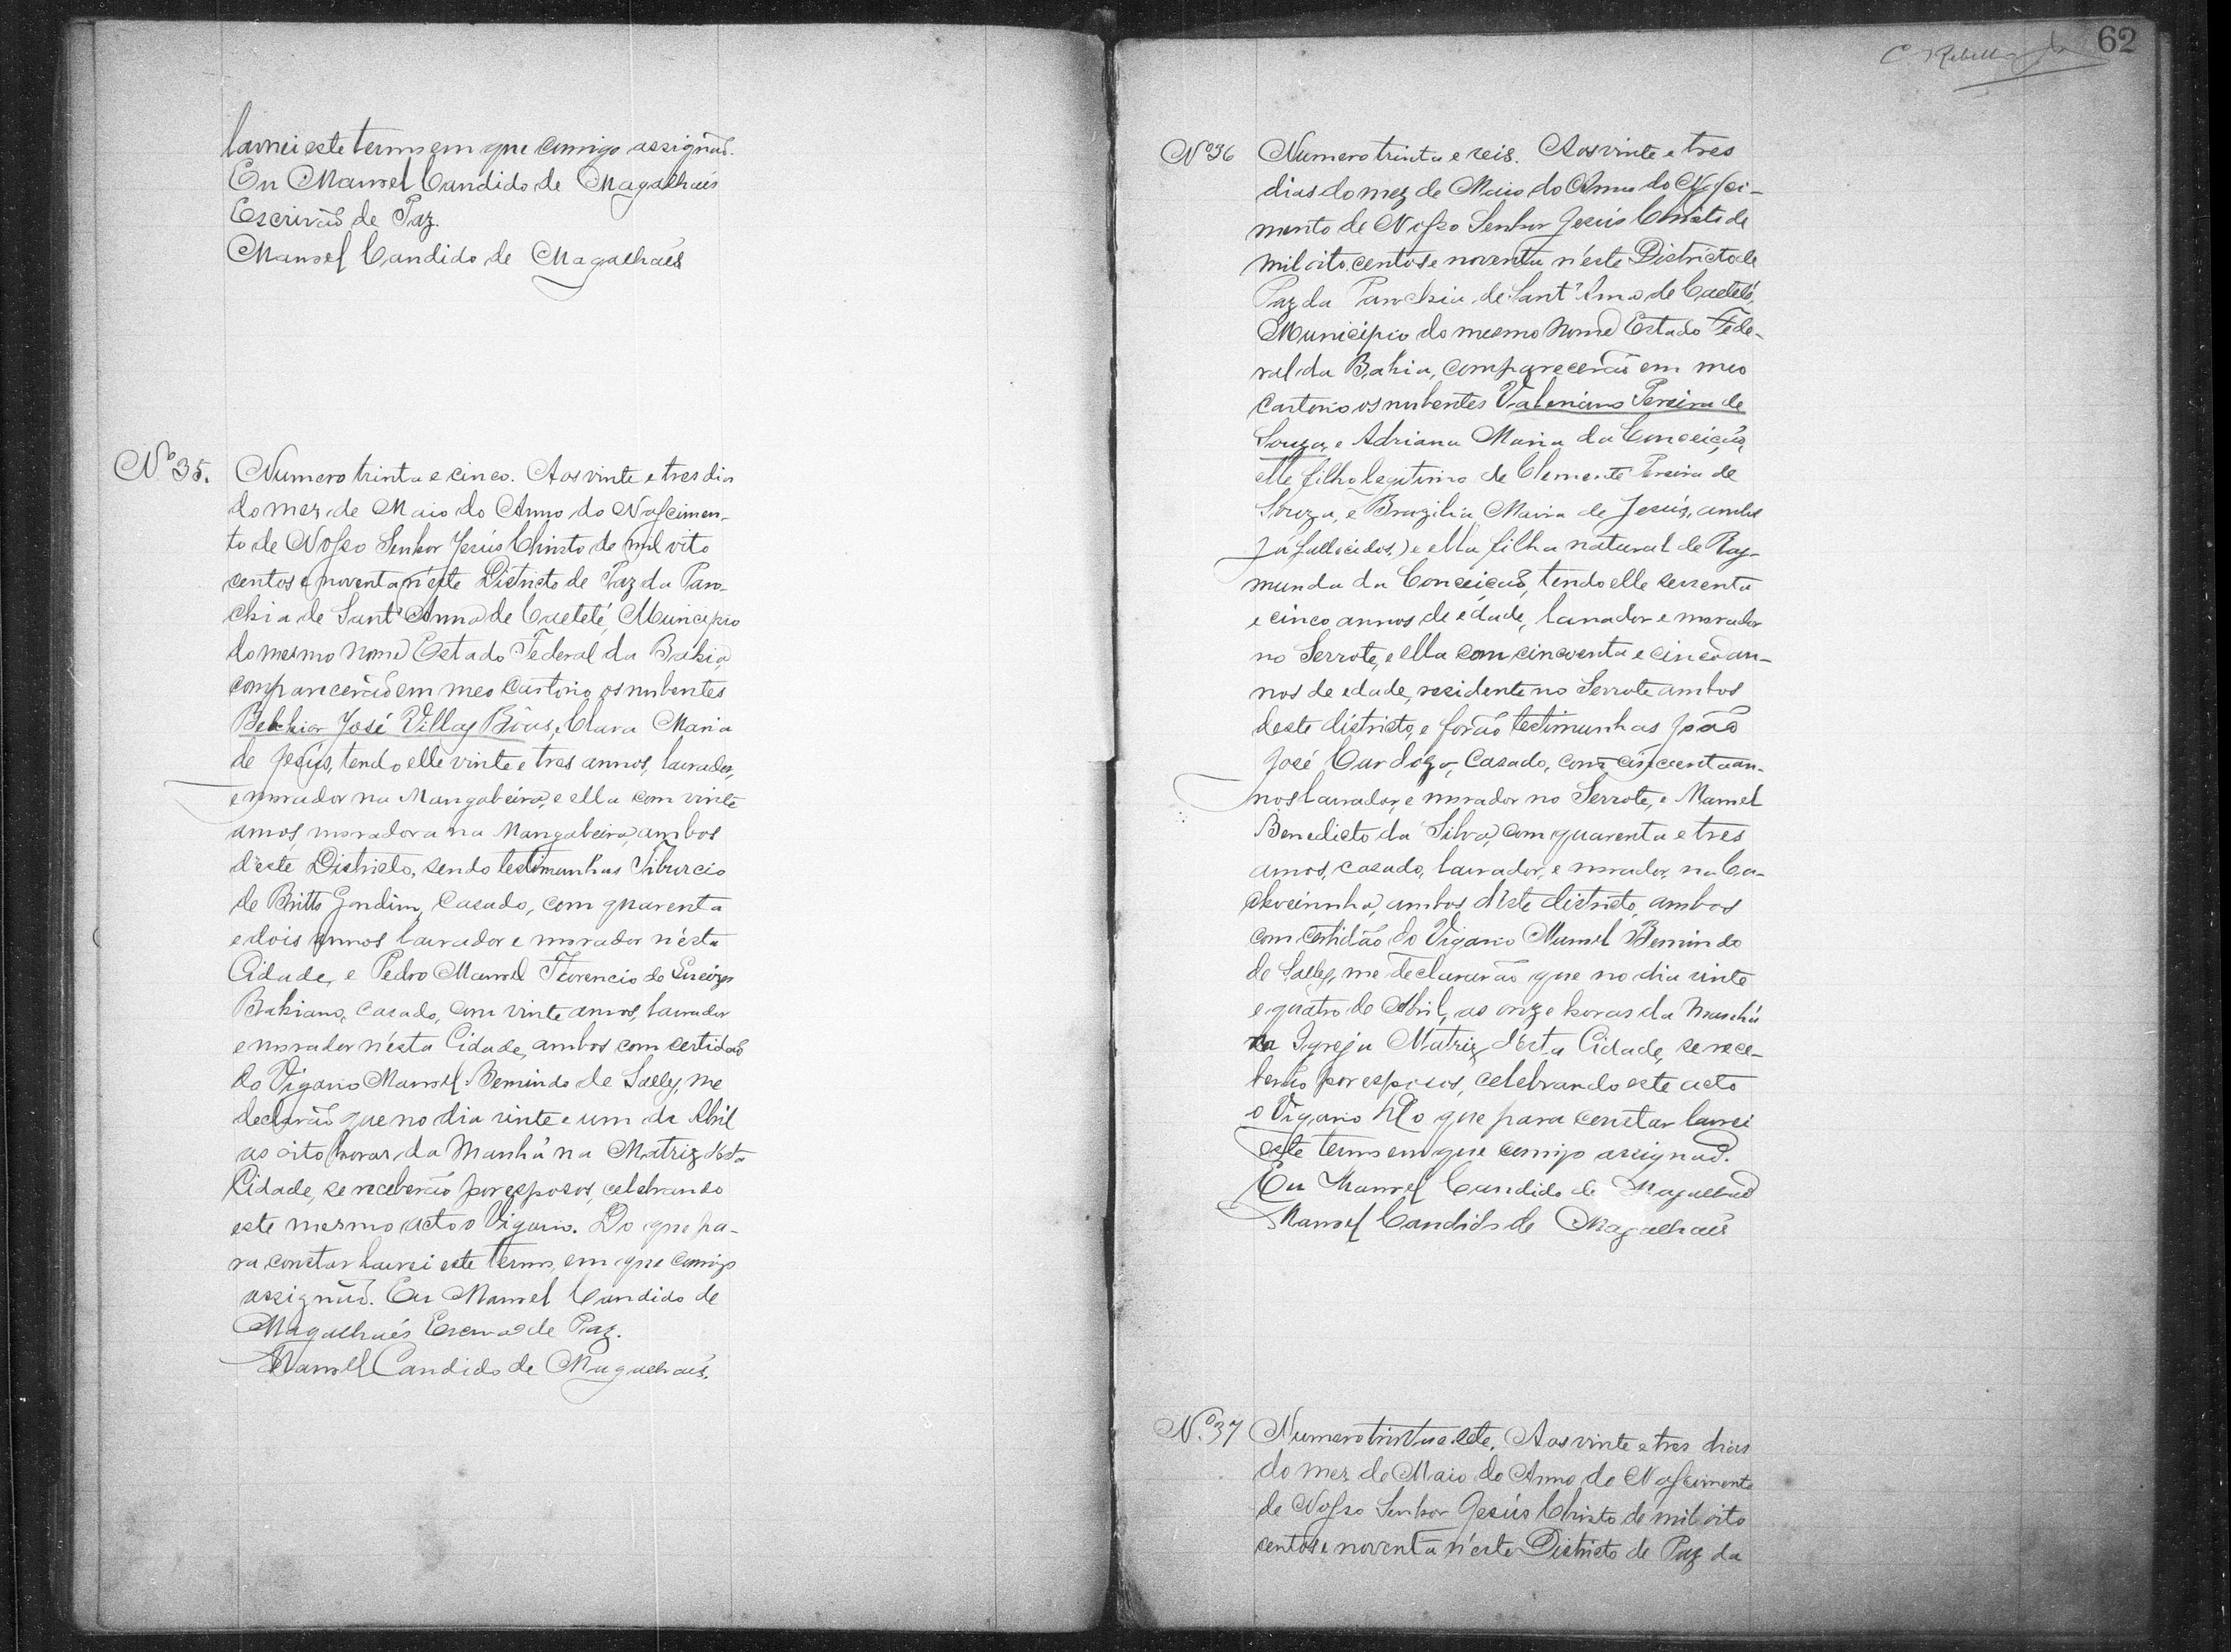 lavrei este termo em que comigo assignaõ.
Eu Manoel Candido de Magalhaẽs
Escrivaõ de Paz.
Manoel Candido de Magalhaẽs
Nº 35. Numero trinta e cinco. Aos vinte e tres dia
do mez de Maio do Anno do Nascimen-
to de Nosso Senhor Jesús Christo de mil oito
centos e noventa n'este Districto de Paz da Paro-
chia de Sant'Anna de Caeteté, Municipio
do mesmo nome Estado Federal da Bahia,
comparecerão em meo Cartorio os nubentes
Belchior José Villas Bôas, e Clara Maria
de Jesús, tendo elle vinte e tres annos, lavrador,
e morador na Mangabeira, e ella com vinte
annos, moradora na Mangabeira, ambos
d'este Districto, sendo testimunhas Tiburcio
de Britto Gondim, Casado, com quarenta
e dois annos lavrador e morador n'esta
Cidade, e Pedro Manoel Florencio de
Bahiano, casado, com vinte annos, lavrador
e morador n'esta Cidade, ambos com certidaõ
do Vigario Manoel Bemindo de Salles, me
declaraõ que no dia vinte e um de Abril
as oito horas da Manhã na Matriz d'esta
Cidade, se receberão por esposos, celebrando
este mesmo acto o Vigario. Do que pa-
ra constar lavrei este termo, em que comigo
assignaõ. Eu Manoel Candido de
Magalhaẽs Escrivaõ de Paz.
Manoel Candido de Magalhaẽs.
62
C Rebello
Nº 36 Numero trinta e seis. Aos vinte e tres
dias do mez de Maio do Anno do Nasci-
mento de Nosso Senhor Jesús Christo de
mil oito centos e noventa n'este Districto de
Paz da Parochia de Sant'Anna de Caeteté,
Municipio do mesmo nome Estado Fede-
ral da Bahia, comparecerão em meo
Cartorio os nubentes Valeriano Pereira de
Souza, e Adriana Maria da Conceição,
elle filho legitimo de Clemente Pereira de
Souza, e Brazilia Maria de Jesús, ambos
já fallecidos, e ella filha natural de Ray-
munda da Conceição, tendo elle sessenta
e cinco annos de edade, lavrador e morador
no Serrote, e ella com cincoenta e cinco an-
nos de edade, residente no Serrote ambos
deste districto, e foraõ testimunhas Joaõ
José Cardozo, Casado, com cincoenta an-
nos lavrador, e morador no Serrote, e Manoel
Benedicto da Silva, com quarenta e tres
annos, casado, lavrador, e morador, na Ca-
choeirinha, ambos d'este districto, ambos
com certidão do Vigario Manoel Bemindo
de Salles, me declararão que no dia vinte
e quatro de Abril, as onze horas da Manhã
na Igreja Matriz d'esta Cidade, se rece-
berão por esposos, celebrando este acto
o Vigario Do que para constar lavrei
este termo em que comigo assignaõ.
Eu Manoel Candido de Magalhaẽs
Manoel Candido de Magalhaẽs
Nº 37 Numero trinta e sete. Aos vinte e tres dias
do mez de Maio do Anno do Nascimento
de Nosso Senhor Jesús Christo de mil oito
centos e noventa n'este Districto de Paz da